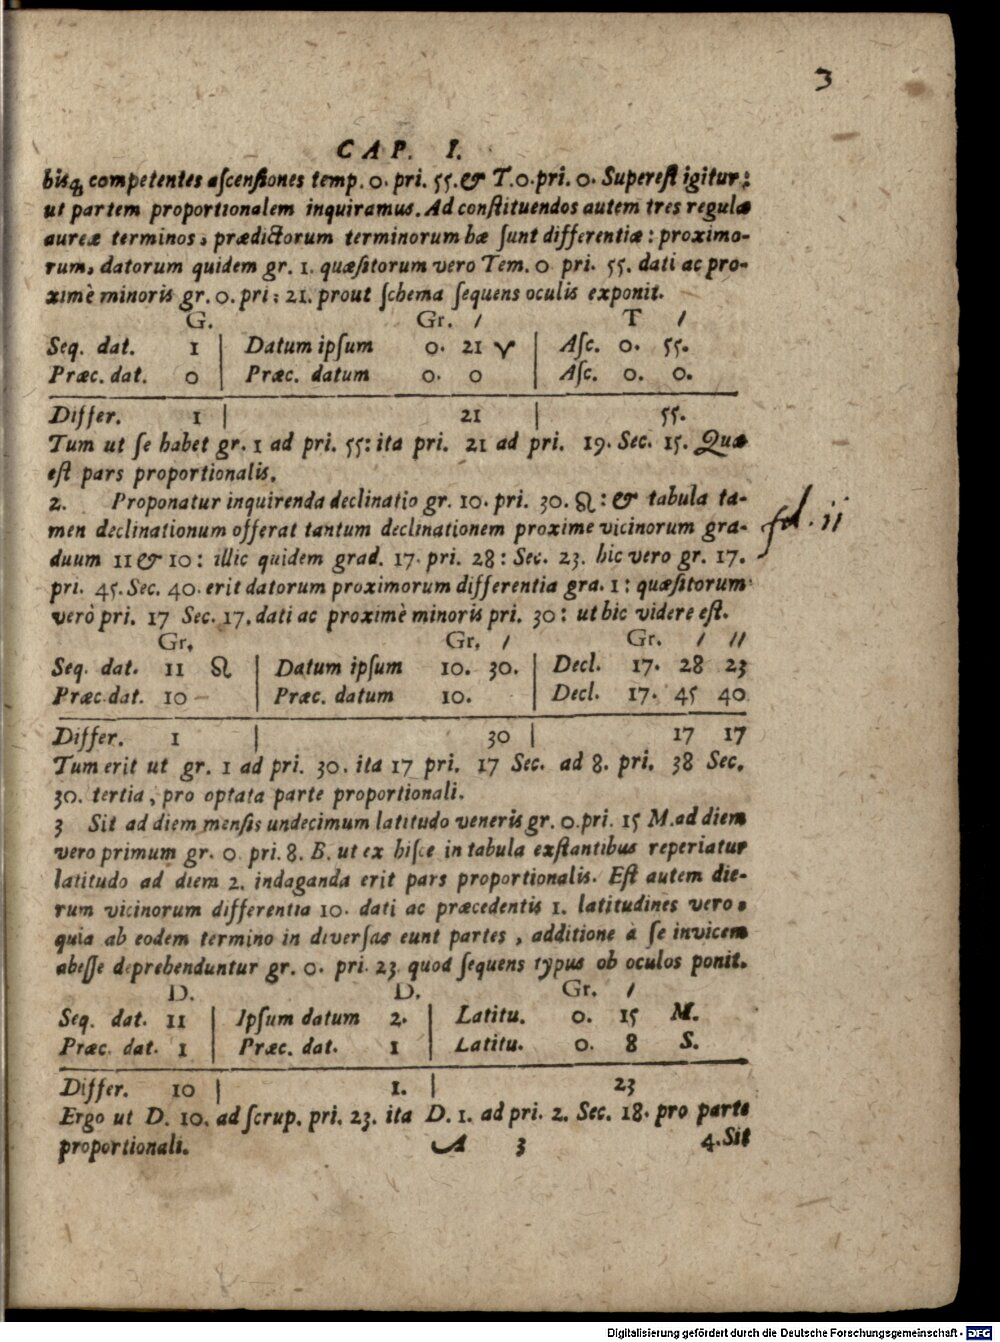 3
CAP. I.
bisq; competentes ascensiones temp. 0. pri. 55. & T.0.pri. 0. Superest igitur:
ut partem proportionalem inquiramus. Ad constituendos autem tres regulæ
aureæ terminos, prædictorum terminorum hæ sunt differentiæ: proximo-
rum, datorum quidem gr. 1. quæsitorum vero Tem. 0 pri. 55. dati ac pro-
ximè minoris gr. 0. pri: 21. prout schema sequens oculis exponit.
G. Gr. / T /
Seq. dat. 1 | Datum ipsum 0. 21 ♈ | Asc. 0. 55.
Præc. dat. 0 | Præc. datum 0. 0 | Asc. 0. 0.
Differ. 1 | 21 | 55.
Tum ut se habet gr. 1 ad pri. 55: ita pri. 21 ad pri. 19. Sec. 15. Quæ
est pars proportionalis.
2. Proponatur inquirenda declinatio gr. 10. pri. 30. ♌: & tabula ta-
men declinationum offerat tantum declinationem proxime vicinorum gra-
duum 11 & 10: illic quidem grad. 17. pri. 28: Sec. 23. hic vero gr. 17.
pri. 45. Sec. 40. erit datorum proximorum differentia gra. 1: quæsitorum
verò pri. 17 Sec. 17. dati ac proximè minoris pri. 30: ut hic videre est.
Gr. Gr. / Gr. / //
Seq. dat. 11 ♌ | Datum ipsum 10. 30. | Decl. 17. 28 23
Præc. dat. 10 | Præc. datum 10. | Decl. 17. 45 40
Differ. 1 | 30 | 17 17
Tum erit ut gr. 1 ad pri. 30. ita 17 pri. 17 Sec. ad 8. pri. 38 Sec.
30. tertia, pro optata parte proportionali.
3 Sit ad diem mensis undecimum latitudo veneris gr. 0. pri. 15 M. ad diem
vero primum gr. 0 pri. 8. B. ut ex hisce in tabula exstantibus reperiatur
latitudo ad diem 2. indaganda erit pars proportionalis. Est autem die-
rum vicinorum differentia 10. dati ac præcedentis 1. latitudines vero,
quia ab eodem termino in diversas eunt partes, additione à se invicem
abesse deprehenduntur gr. 0. pri. 23. quod sequens typus ob oculos ponit.
D. D. Gr. /
Seq. dat. 11 | Ipsum datum 2. | Latitu. 0. 15 M.
Præc. dat. 1 | Præc. dat. 1 | Latitu. 0. 8 S.
Differ. 10 | 1. | 23
Ergo ut D. 10. ad scrup. pri. 23. ita D. 1. ad pri. 2. Sec. 18. pro parte
proportionali.
A 3 4. Sit
Digitalisierung gefördert durch die Deutsche Forschungsgemeinschaft - DFG